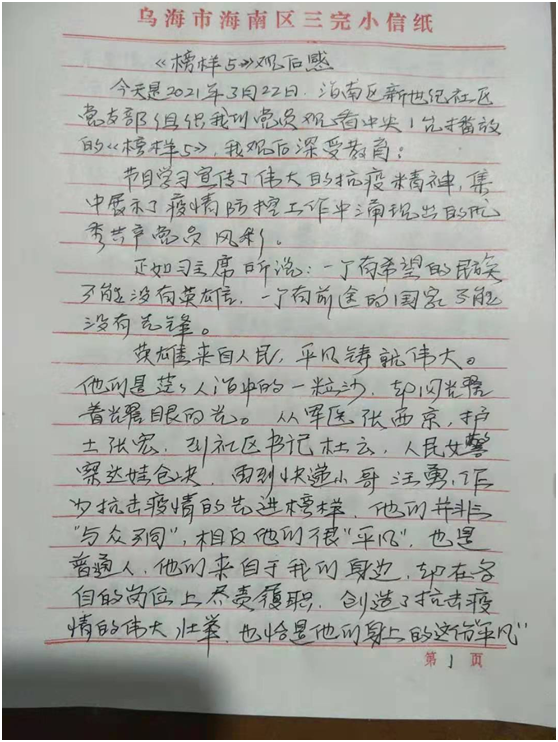 乌海市海南区三完小信纸
《榜样5》观后感
今天是2021年3月22日.海南区新世纪社区
党支部组织我们党员观看中央1台播放
的《榜样5》,我观后深受教育:
节目学习宣传了伟大的抗疫精神,集
中展示了疫情防控工作中涌现出的优
秀共产党员风彩。
正如习主席所说:一个有希望的民族
不能没有英雄,一个有前途的国家不能
没有先锋。
英雄来自人民,平凡铸就伟大。
他们是茫々人海中的一粒沙,却闪光
着光耀眼的光。从军医张西京,护
士张宏,到社区书记杜云,人民女警
察达娃仓决,再到快递小哥汪勇,作
为抗击疫情的先进榜样,他们并非
"与众不同",相反他们很"平凡",也是
普通人,他们来自于我们身边,却在各
自的岗位上尽责履职,创造了抗击疫
情的伟大壮举,也恰是他们身上的这份"平凡"
第1页